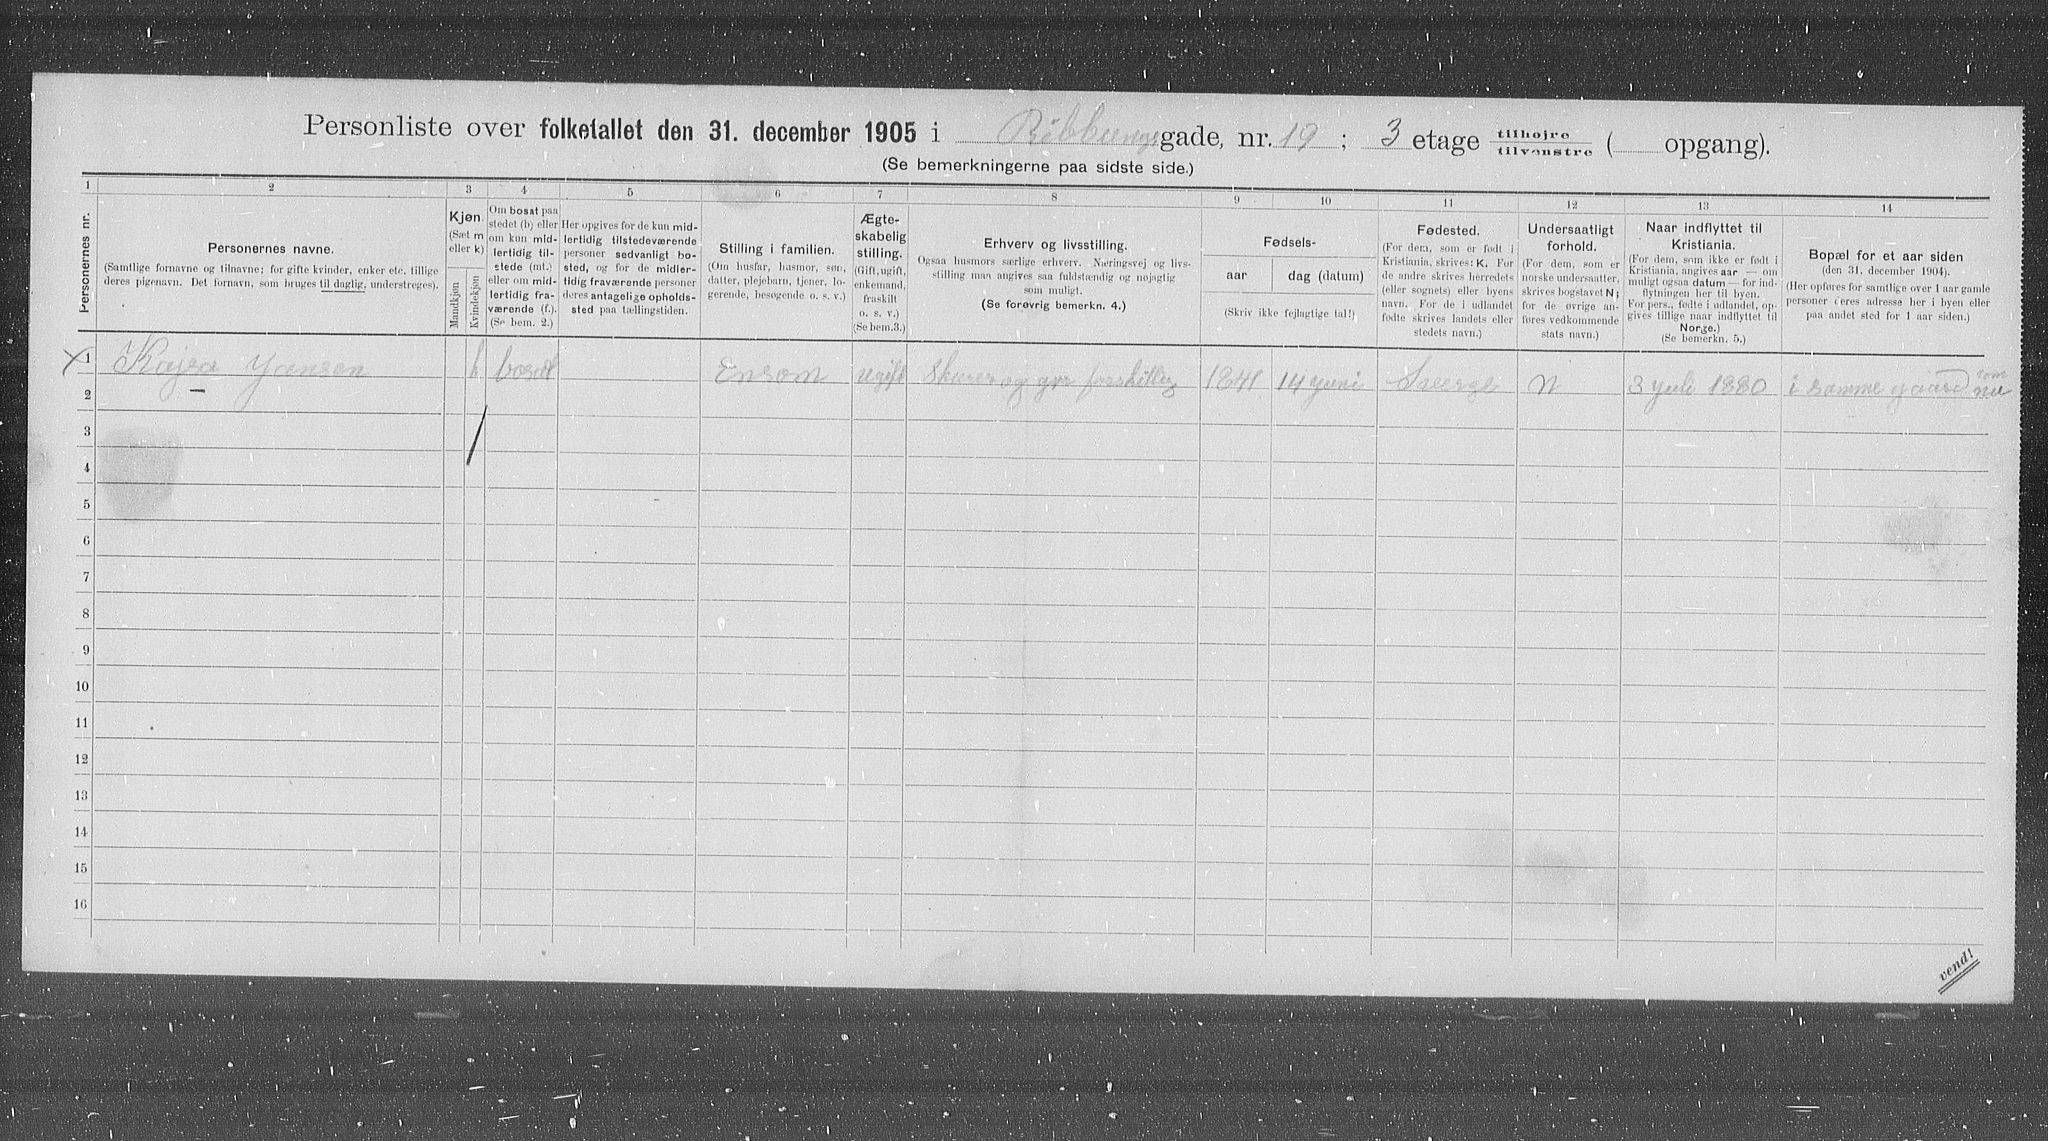 Personliste over folketallet den 31. december 1905 i Ribbungs gade, nr. 19 ; 3 etage tilhøjre / tilvenstre ( opgang).
(Se bemerkningerne paa sidste side.)
1 2 3 4 5 6 7 8 9 10 11 12 13 14
Personernes nr.
Personernes navne.
(Samtlige fornavne og tilnavne; for gifte kvinder, enker etc. tillige
deres pigenavn. Det fornavn, som bruges til daglig, understreges).
Kjøn.
(Sæt m
eller k)
Mandkjøn
Kvindekjøn
Om bosat paa
stedet (b) eller
om kun mid-
lertidig til-
stede (mt.)
eller om mid-
lertidig fra-
værende (f.).
(Se bem. 2.)
Her opgives for de kun mid-
lertidig tilstedeværende
personer sedvanligt bo-
sted, og for de midler-
tidig fraværende personer
deres antagelige opholds-
sted paa tællingstiden.
Stilling i familien.
(Om husfar, husmor, søn,
datter, plejebarn, tjener, lo-
gerende, besøgende o. s. v.)
Ægte-
skabelig
stilling.
(Gift, ugift,
enkemand,
fraskilt
o. s. v.)
(Se bem. 3.)
Erhverv og livsstilling.
Ogsaa husmors særlige erhverv. Næringsvej og livs-
stilling maa angives saa fuldstændig og nøjagtig
som muligt.
(Se forøvrig bemerkn. 4.)
Fødsels-
aar
dag (datum)
(Skriv ikke fejlagtige tal!)
Fødested.
(For dem, som er født i
Kristiania, skrives: K. For
de andre skrives herredets
(eller sognets) eller byens
navn. For de i udlandet
fødte skrives landets eller
stedets navn.)
Undersaatligt
forhold.
(For dem, som er
norske undersaatter,
skrives bogstavet N;
for de øvrige an-
føres vedkommende
stats navn.)
Naar indflyttet til
Kristiania.
(For dem, som ikke er født i
Kristiania, angives aar — om
muligt ogsaa datum — for ind-
flytningen her til byen.
For pers., fødte i udlandet, op-
gives tillige naar indflyttet til
Norge.)
(Se bemerkn. 5.)
Bopæl for et aar siden
(den 31. december 1904).
(Her opføres for samtlige over 1 aar gamle
personer deres adresse her i byen eller
paa andet sted for 1 aar siden.)
1 Kajsa Jansen k bosat Ensom ugift og gør 1841 14 juni Sverge N 3 juli 1880 i samme gaard som nu
2
3
4
5
6
7
8
9
10
11
12
13
14
15
16
vend!